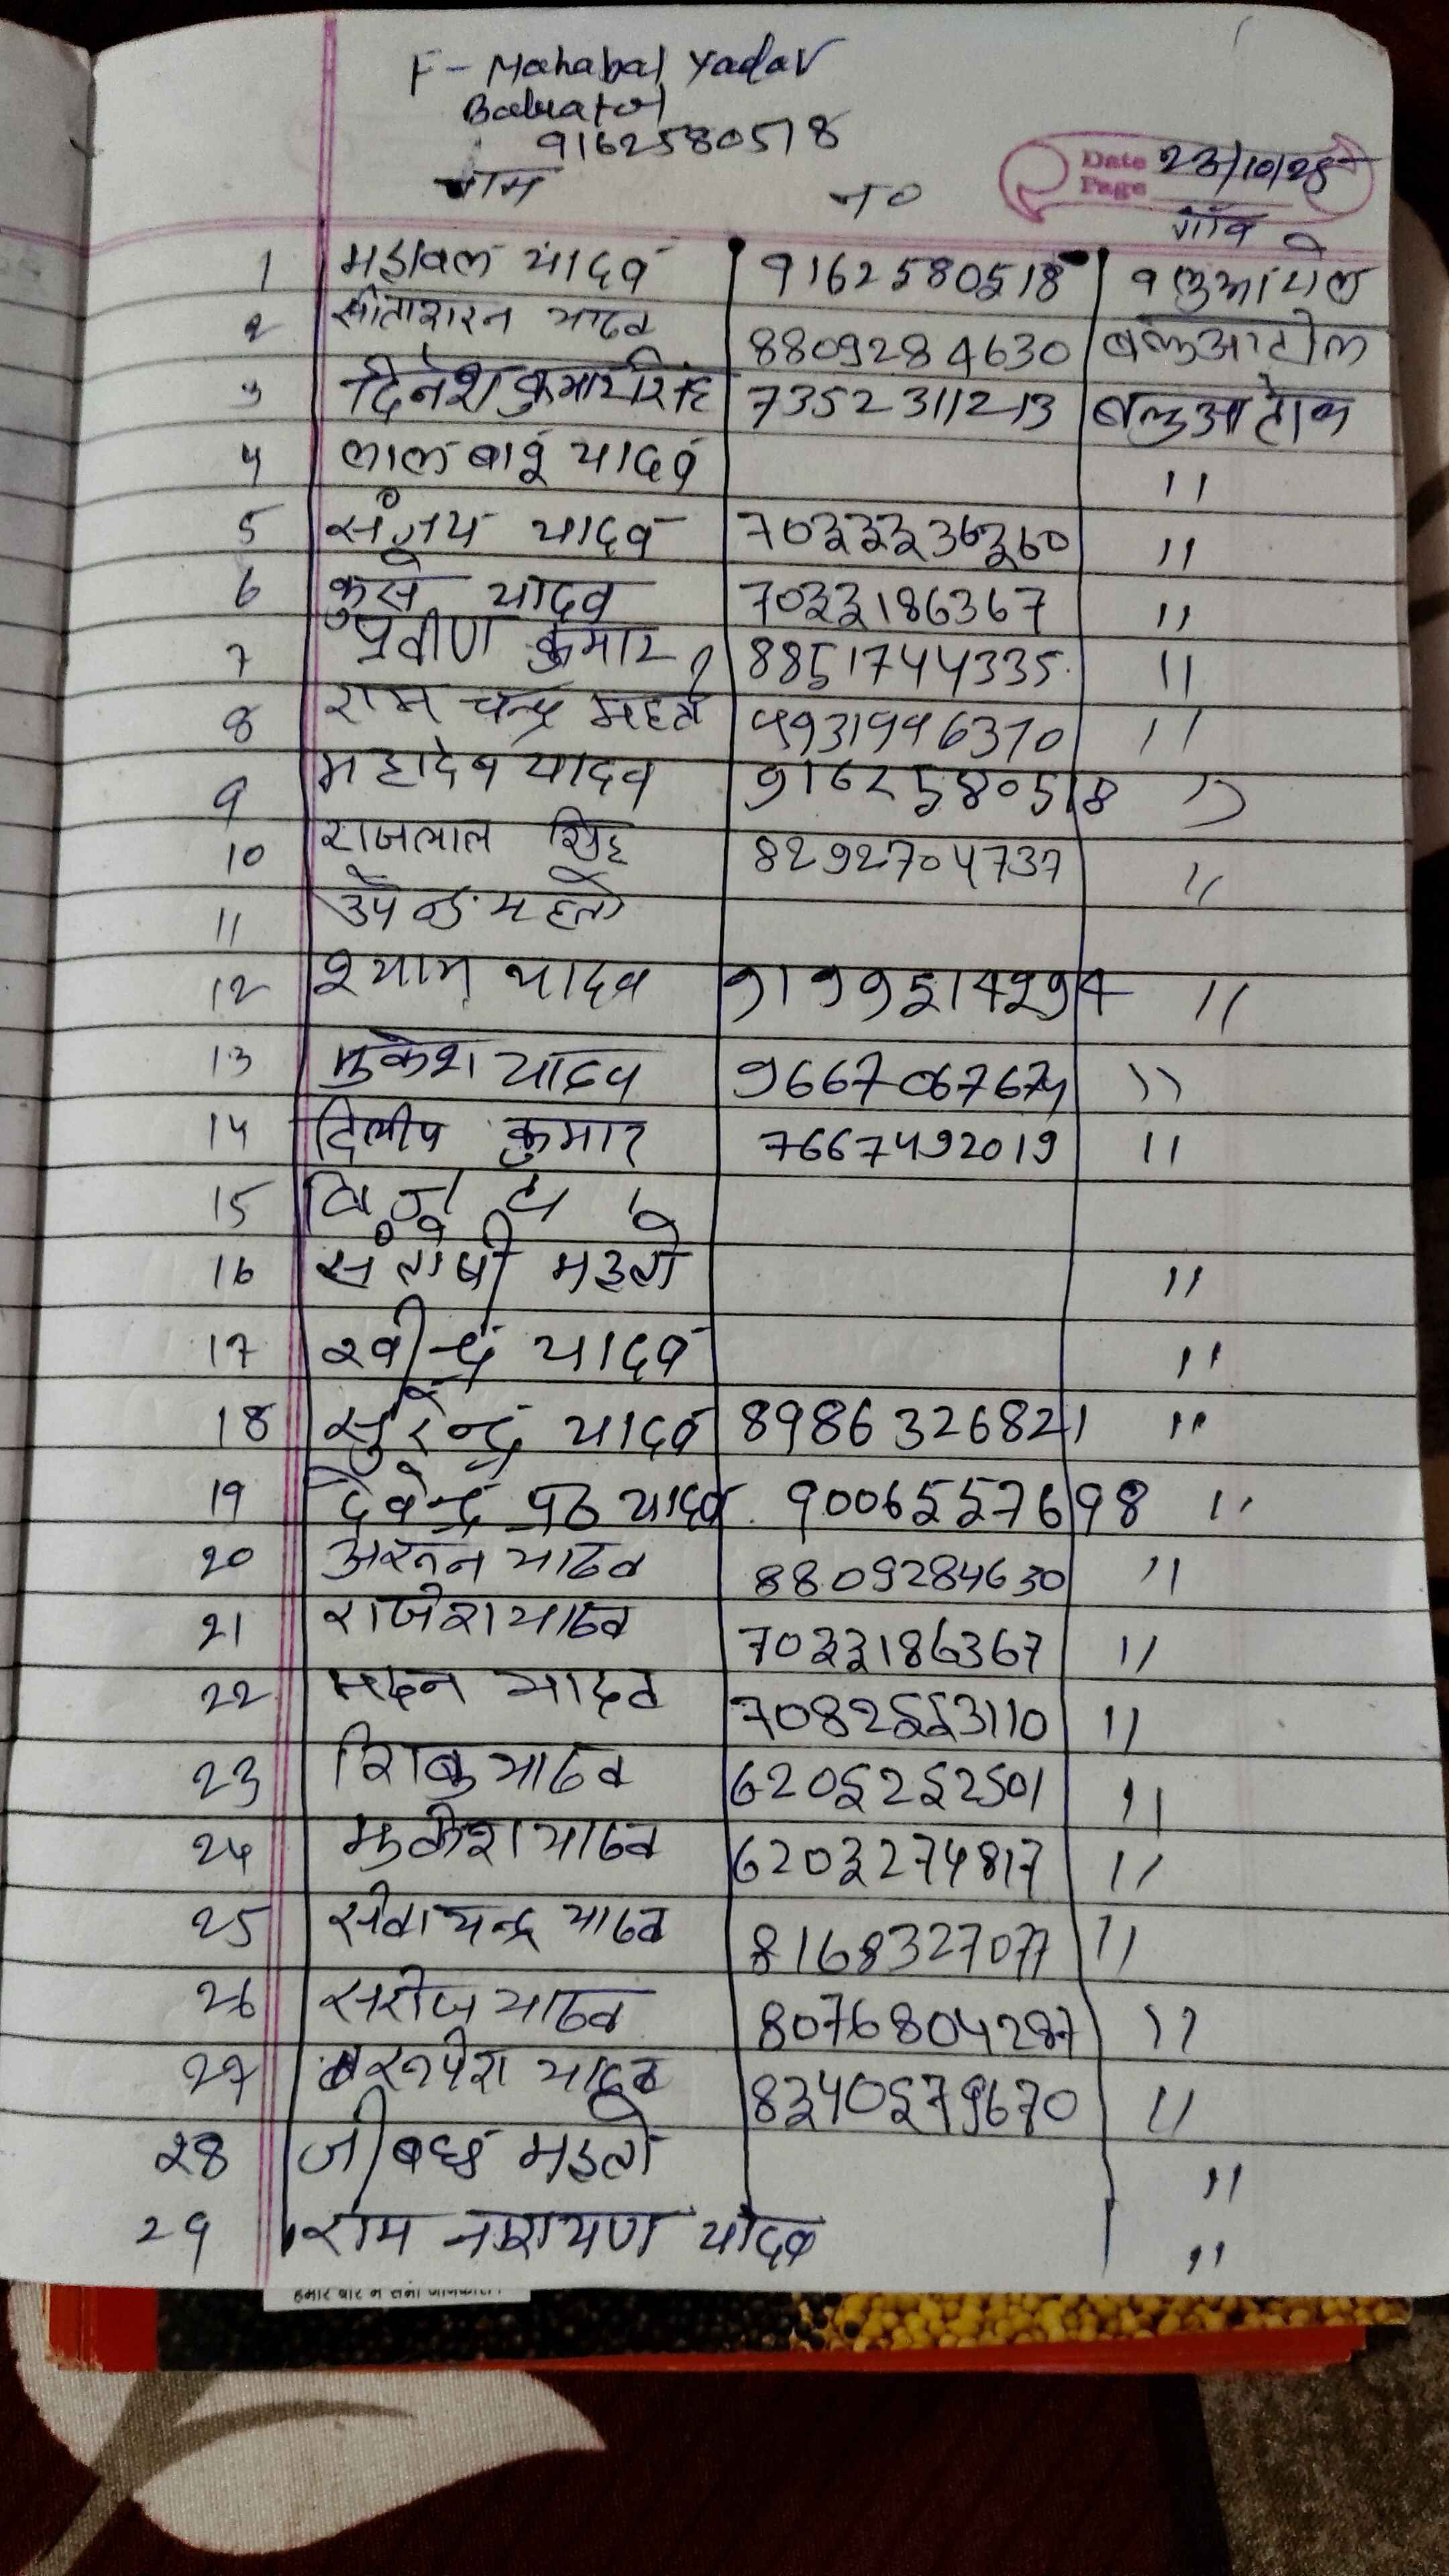 F- Mahabal Yadav
Baluatol
9162580518
Date 23/10/25
Page
नाम नo गाँव
1 महावल यादव 9162580518 वलुआटोल
2 सीताशरन यादव 8809284630 बलुआटोल
3 दिनेश कुमार सिंह 7352311213 बलुआटोल
4 लाल बाबू यादव 11
5 संजय यादव 7033336360 11
6 कुसे यादव 7033186367 11
7 प्रवीण कुमार 8851744335 11
8 राम चन्द्र महतो 9931996370 11
9 महादेव यादव 9162580518 11
10 राजलाल सिंह 8292704737 11
11 उपेन्द्र महतो
12 श्याम यादव 9199514294 11
13 मुकेश यादव 9667067674 11
14 दिलीप कुमार 7667492019 11
15 विजय
16 संतोषी महतो 11
17 रवीन्द्र यादव 11
18 सुरेन्द्र यादव 8986326821 11
19 देवेन्द्र प्रo यादव 9006557698 11
20 अरुन यादव 8809284630 11
21 राजेश यादव 7033186367 11
22 मदन यादव 7082553110 11
23 शिबु यादव 6205252501 11
24 मुकेश यादव 6203274817 11
25 सीता चन्द्र यादव 8168327077 11
26 सरोज यादव 8076804287 11
27 रुपेश यादव 8340579670 11
28 जीबछ महतो 11
29 राम नारायण यादव 11
हमारे बारे में सभी जानकारी